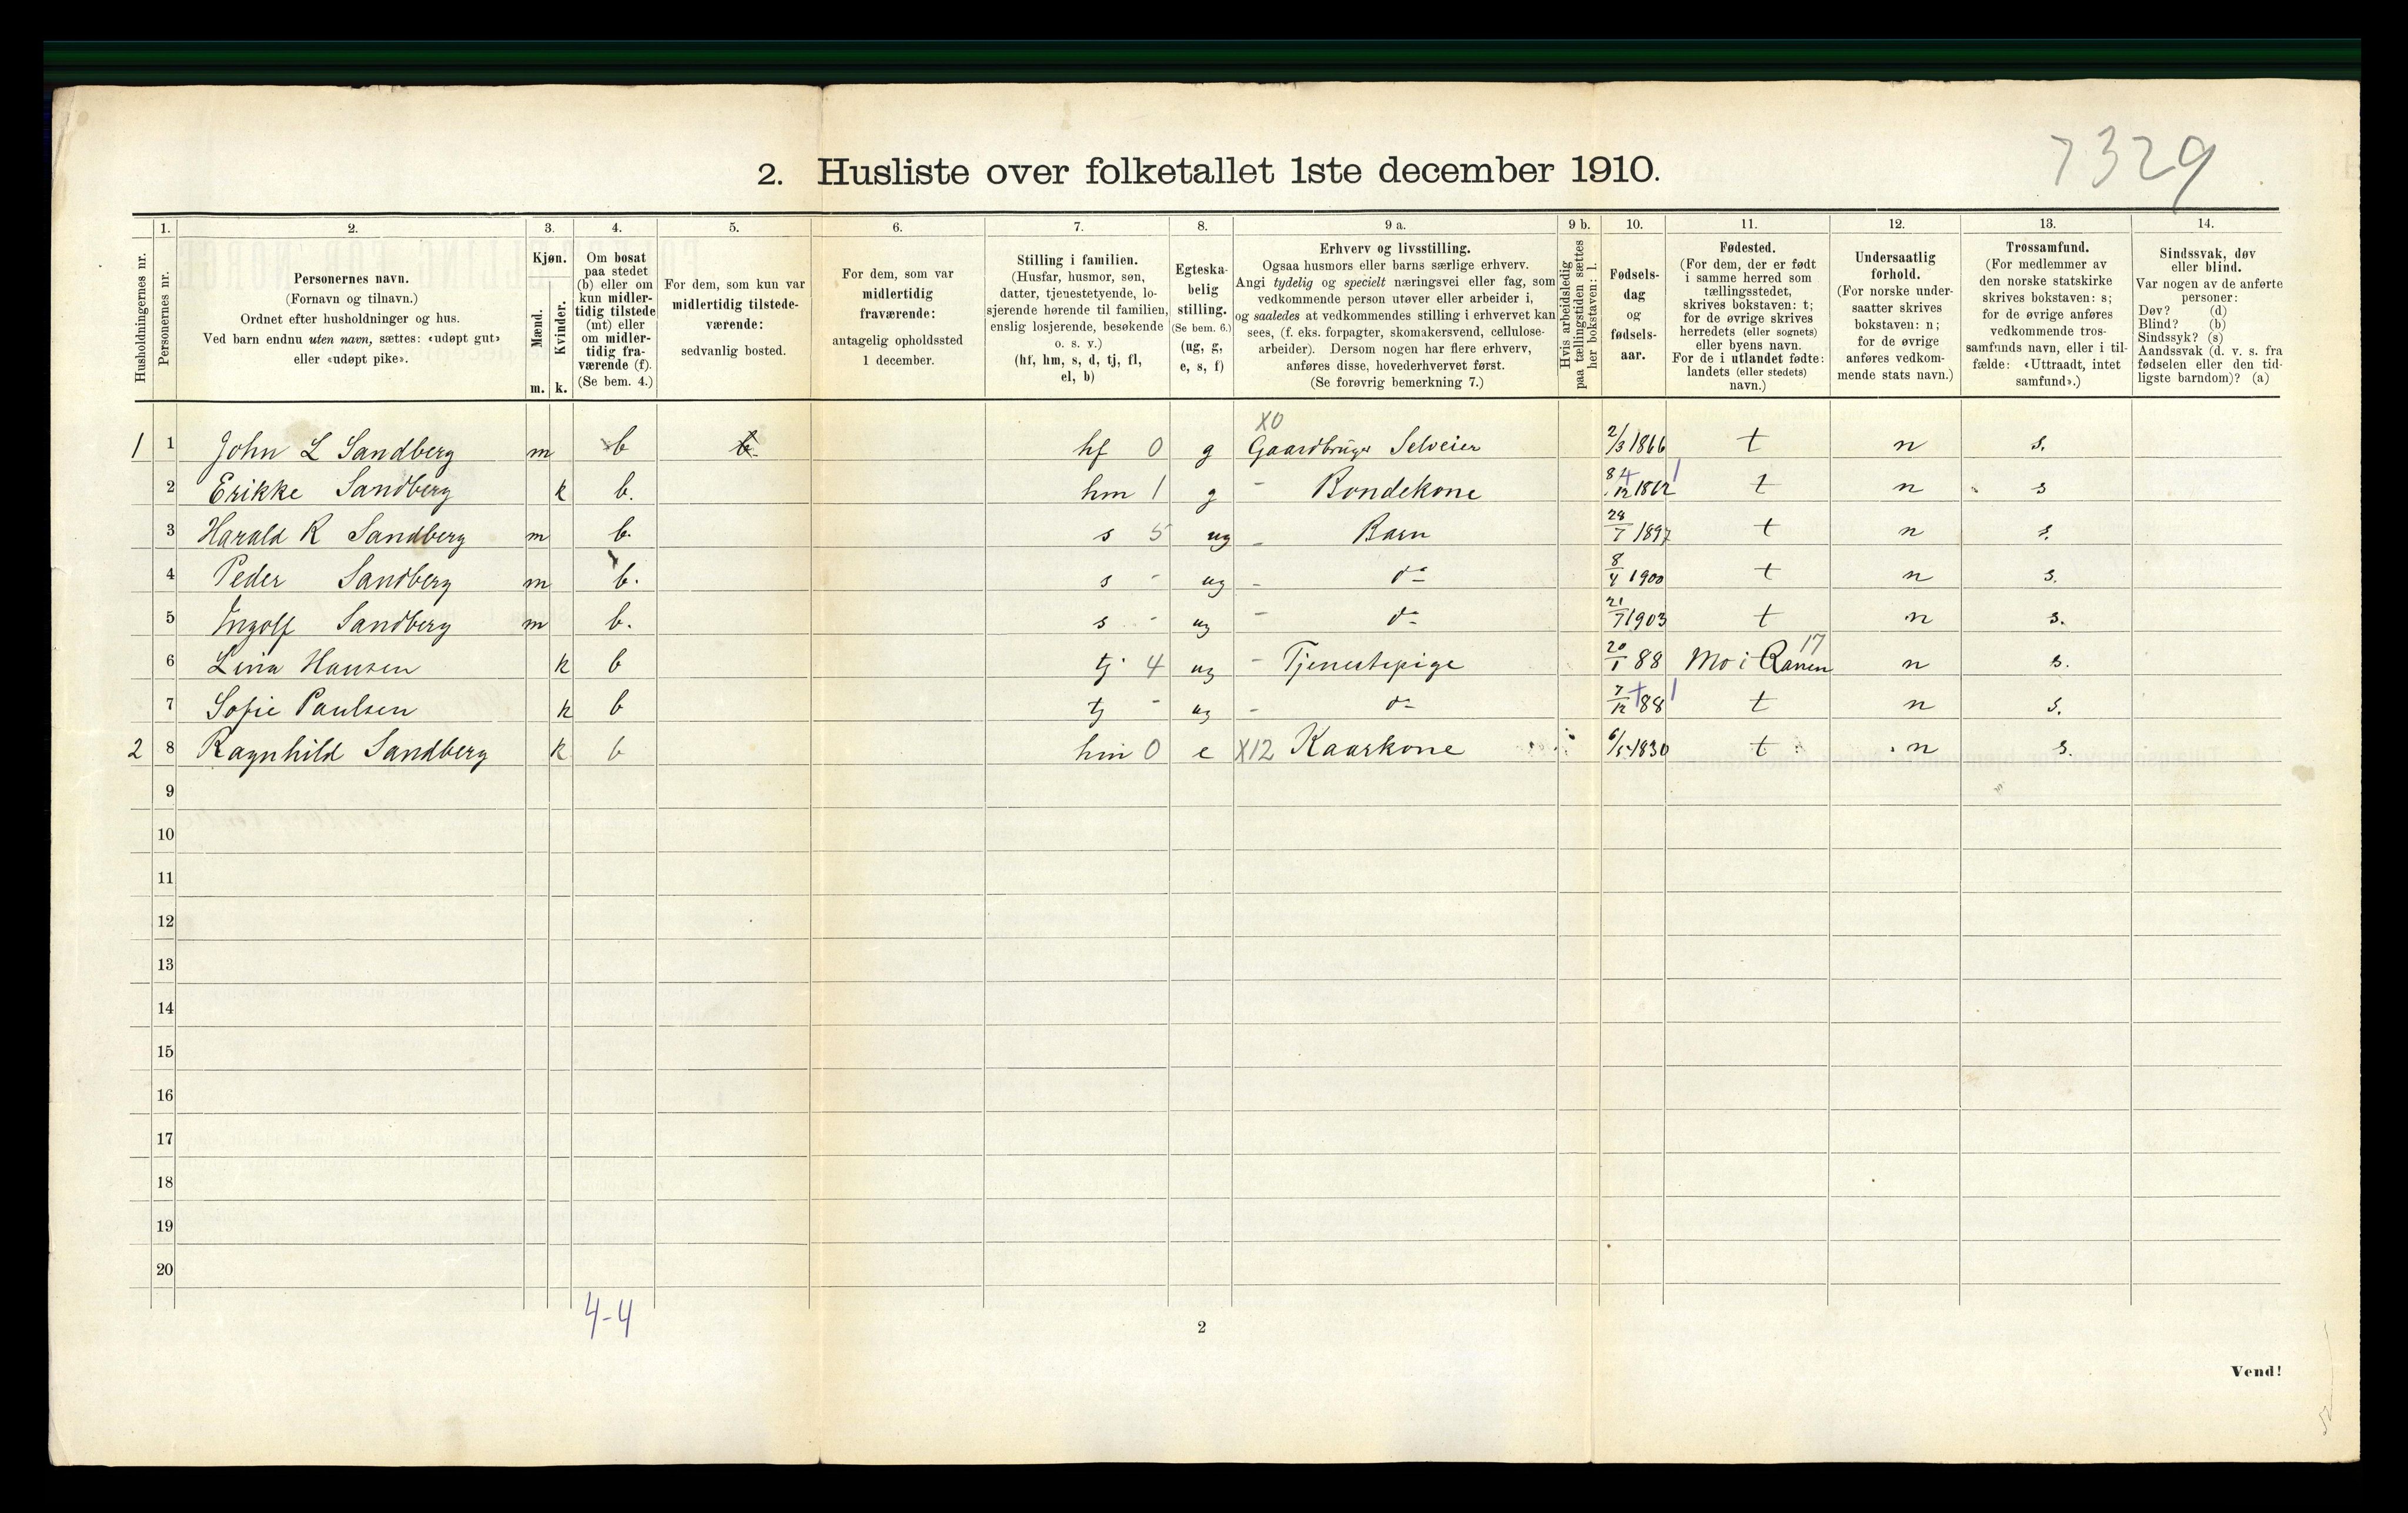 7329
2. Husliste over folketallet 1ste december 1910.
1. 2. 3. 4. 5. 6. 7. 8. 9 a. 9 b. 10. 11. 12. 13. 14.
Husholdningernes nr.
Personernes nr.
Personernes navn.
(Fornavn og tilnavn.)
Ordnet efter husholdninger og hus.
Ved barn endnu uten navn, sættes: «udøpt gut»
eller «udøpt pike».
Kjøn.
Mænd.
Kvinder.
m. k.
Om bosat
paa stedet
(b) eller om
kun midler-
tidig tilstede
(mt) eller
om midler-
tidig fra-
værende (f).
(Se bem. 4.)
For dem, som kun var
midlertidig tilstede-
værende:
sedvanlig bosted.
For dem, som var
midlertidig
fraværende:
antagelig opholdssted
1 december.
Stilling i familien.
(Husfar, husmor, søn,
datter, tjenestetyende, lo-
sjerende hørende til familien,
enslig losjerende, besøkende
o. s. v.)
(hf, hm, s, d, tj, fl,
el, b)
Egteska-
belig
stilling.
(Se bem. 6.)
(ug, g,
e, s, f)
Erhverv og livsstilling.
Ogsaa husmors eller barns særlige erhverv.
Angi tydelig og specielt næringsvei eller fag, som
vedkommende person utøver eller arbeider i,
og saaledes at vedkommendes stilling i erhvervet kan
sees, (f. eks. forpagter, skomakersvend, cellulose-
arbeider). Dersom nogen har flere erhverv,
anføres disse, hovederhvervet først.
(Se forøvrig bemerkning 7.)
Hvis arbeidsledig
paa tællingstiden sættes
her bokstaven: l.
Fødsels-
dag
og
fødsels-
aar.
Fødested.
(For dem, der er født
i samme herred som
tællingsstedet,
skrives bokstaven: t;
for de øvrige skrives
herredets (eller sognets)
eller byens navn.
For de i utlandet fødte:
landets (eller stedets)
navn.)
Undersaatlig
forhold.
(For norske under-
saatter skrives
bokstaven: n;
for de øvrige
anføres vedkom-
mende stats navn.)
Trossamfund.
(For medlemmer av
den norske statskirke
skrives bokstaven: s;
for de øvrige anføres
vedkommende tros-
samfunds navn, eller i til-
fælde: «Uttraadt, intet
samfund».)
Sindssvak, døv
eller blind.
Var nogen av de anførte
personer:
Døv? (d)
Blind? (b)
Sindssyk? (s)
Aandssvak (d. v. s. fra
fødselen eller den tid-
ligste barndom)? (a)
X0
1 1 John L Sandberg m b b hf 0 g Gaardbruger Selveier 2/3 1866 t n s.
2 Erikke Sandberg k b. hm 1 g - Bondekone 8/12 1862 t n s
3 Harald R Sandberg m b. s 5 ug - Barn 28/7 1897 t n s.
4 Peder Sandberg m b. s - ug - do 8/4 1900 t n s.
5 Ingolf Sandberg m b. s - ug - do 21/7 1903 t n s.
6 Lina Hansen k b tj 4 ug - Tjenestepige 20/1 88 Mo i Ranen 17 n s.
7 Sofie Paulsen k b tj - ug - do 7/12 88 t n s.
2 8 Ragnhild Sandberg k b hm 0 e X12 Kaarkone 6/5 1830 t n s.
9
10
11
12
13
14
15
16
17
18
19
20
4-4
2
Vend!